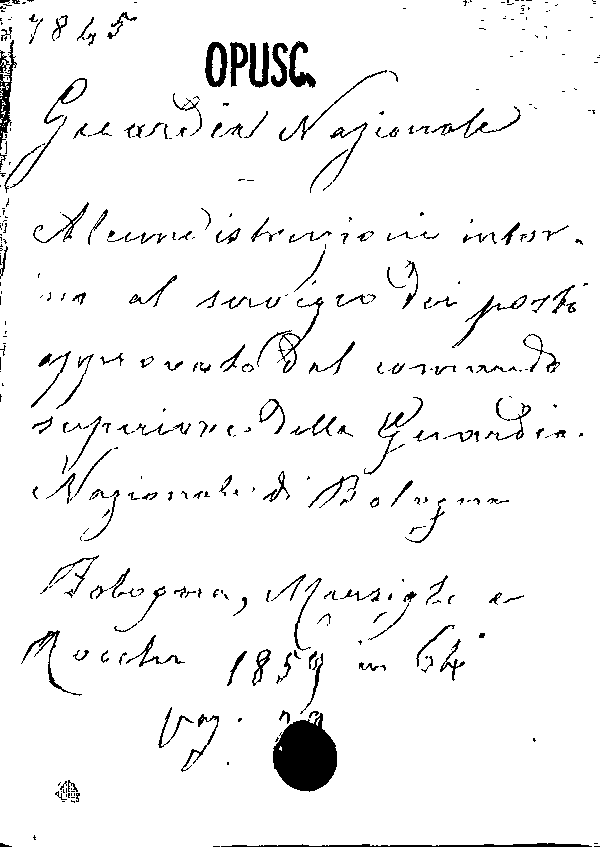 7845
OPUSC.
Guardia Nazionale
Alcune istruzioni intor-
no al servigio dei posti
approvato dal comando
superiore della Guardia
Nazionale di Bologna
Bologna, Marsigli e
Rocchi 1859 in 64°